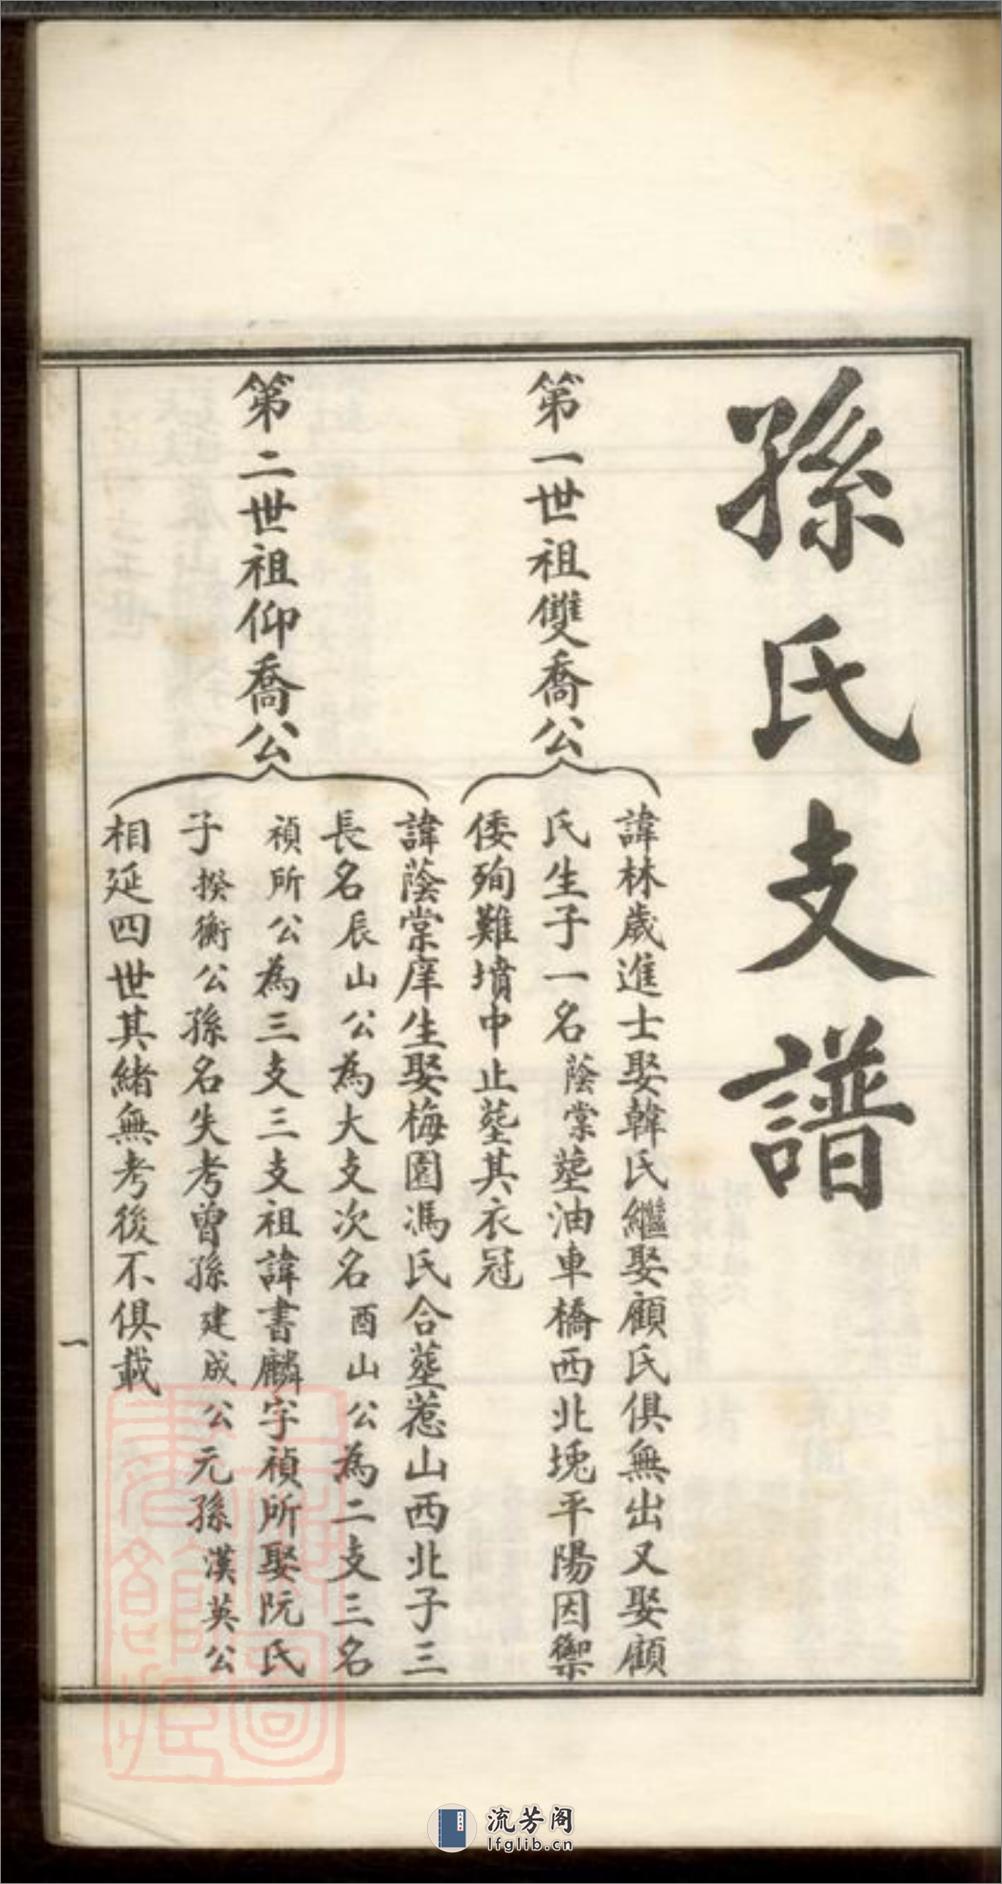 孫氏支譜
第一世祖雙喬公
諱林歲進士娶韓氏繼娶顧氏俱無出又娶顧
氏生子一名蔭棠塟油車橋西北堍平陽因禦
倭殉難墳中止塟其衣冠
第二世祖仰喬公
諱蔭棠庠生娶梅園馮氏合塟惹山西北子三
長名辰山公為大支次名酉山公為二支三名
禎所公為三支三支祖諱書麟字禎所娶阮氏
子揆衡公孫名失考曾孫建成公元孫漢英公
相延四世其緒無考後不俱載
一
流芳阁
lfglib.cn